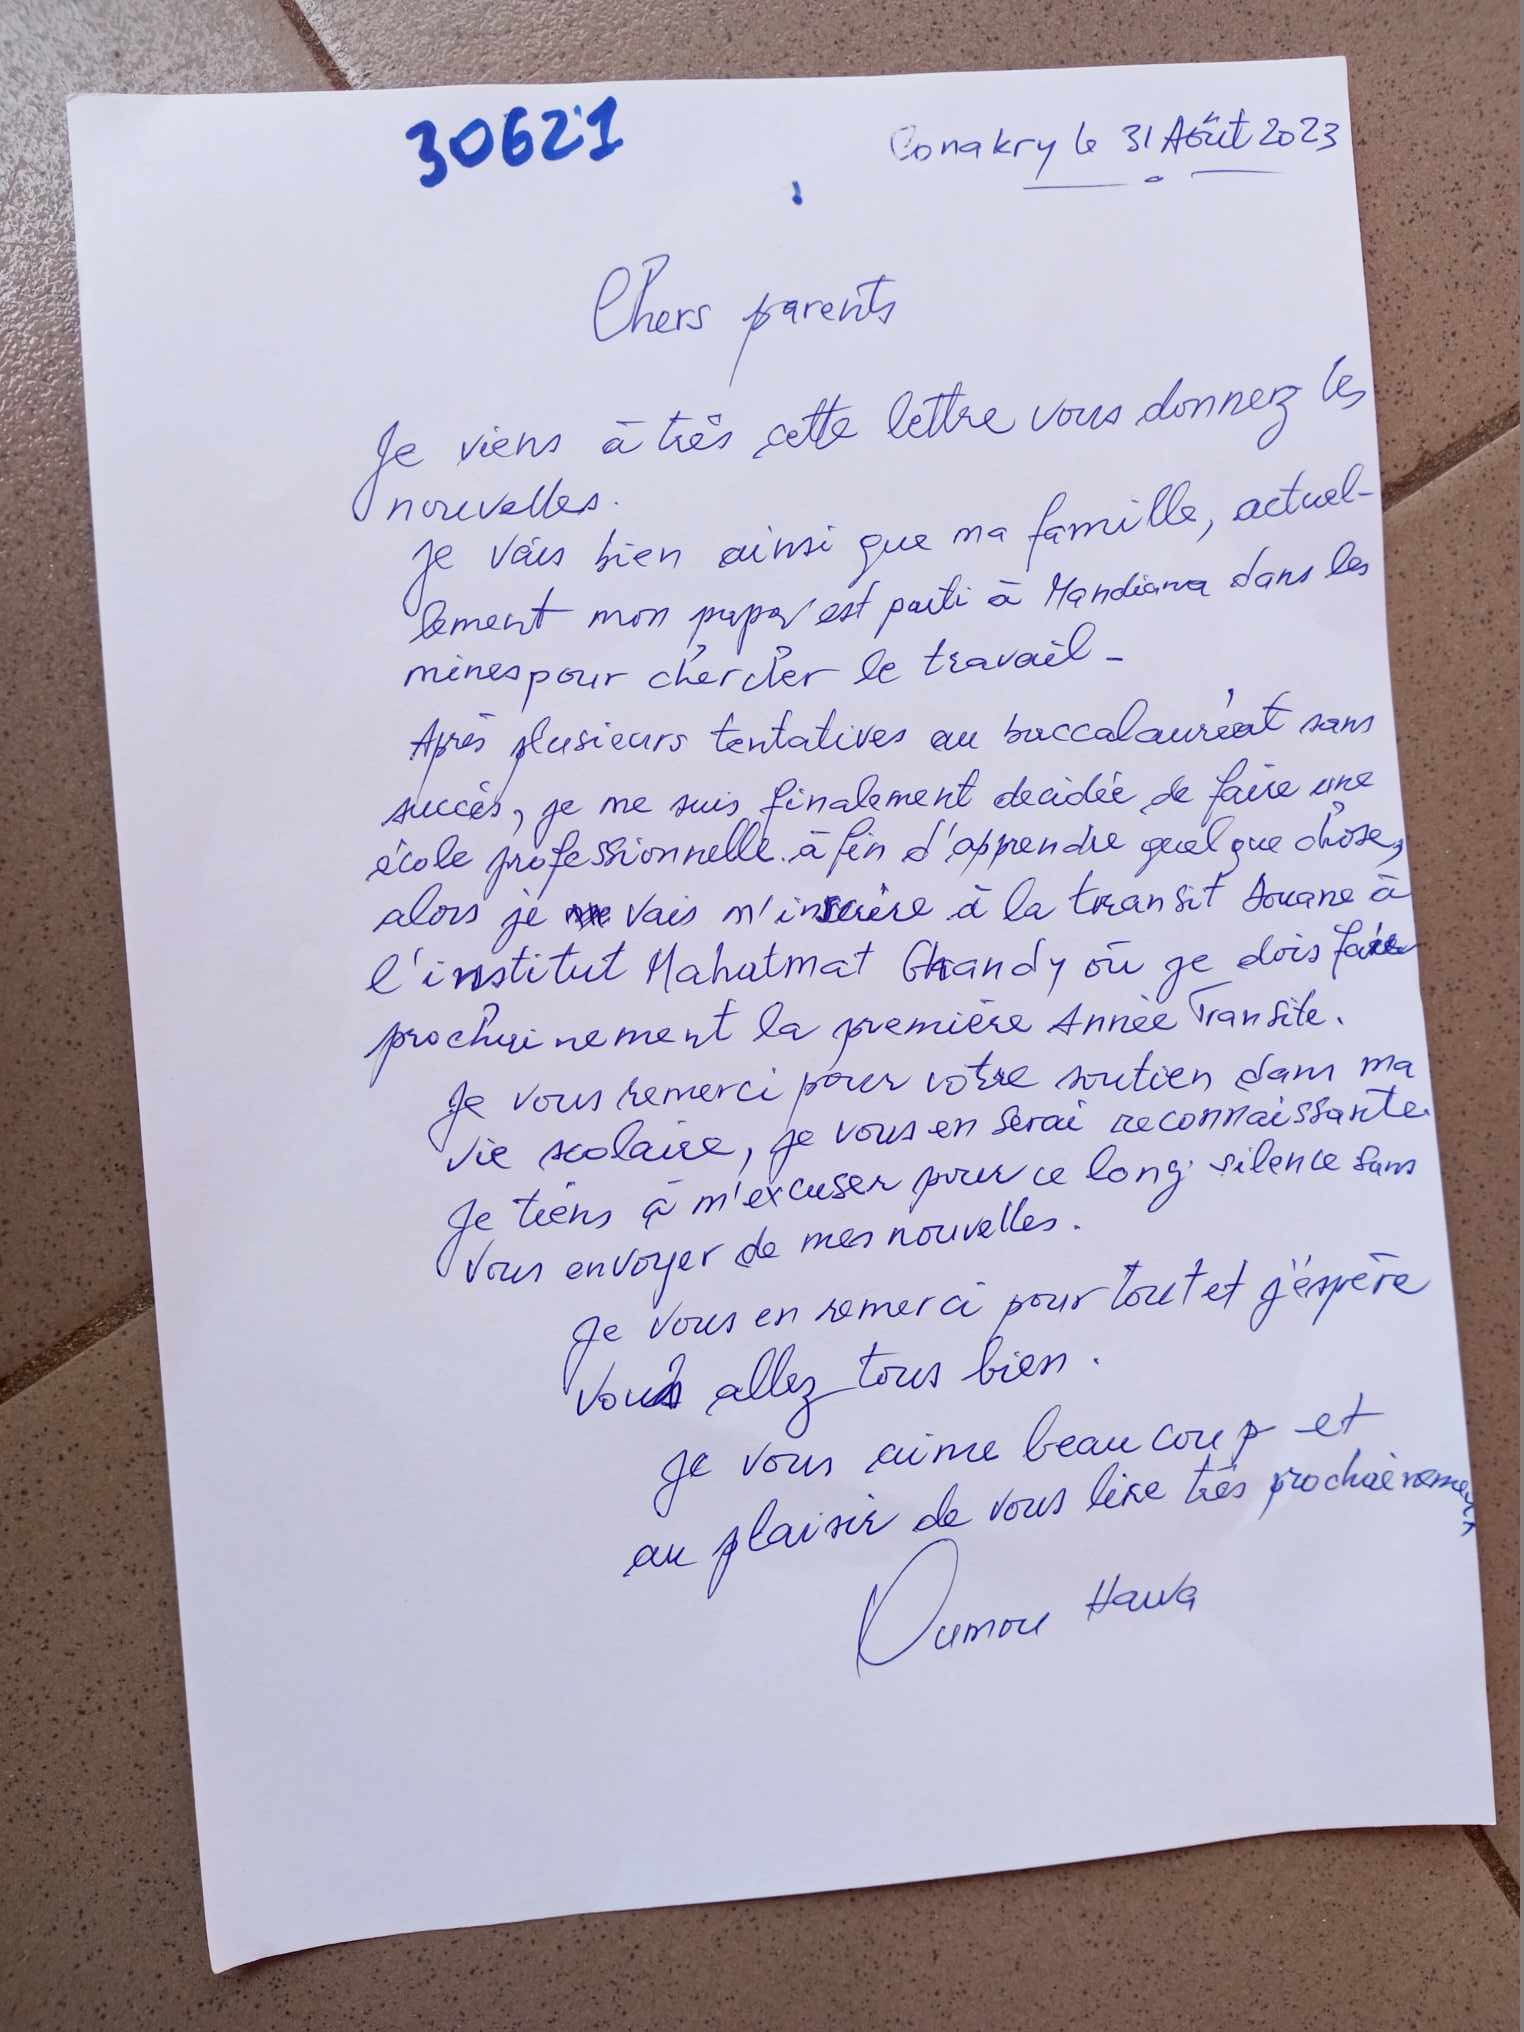 30621
Conakry le 31 Août 2023
Chers parents
Je viens à très cette lettre vous donnez les
nouvelles.
Je vais bien ainsi que ma famille, actuel-
lement mon papa est parti à Mandiana dans les
mines pour chercher le travail -
Après plusieurs tentatives au baccalauréat sans
succès, je me suis finalement decidée de faire une
école professionnelle à fin d'apprendre quelque chose,
alors je vais m'inscrire à la transit Douane à
l'institut Mahatmat Ghandy où je dois faire
prochainement la première Année Transite.
Je vous remerci pour votre soutien dans ma
vie scolaire, je vous en serai reconnaissante.
Je tiens à m'excuser pour ce long silence sans
vous envoyer de mes nouvelles.
Je vous en remerci pour tout et j'éspère
vous allez tous bien.
Je vous aime beaucoup et
au plaisir de vous lire très prochainement
Oumou Hawa